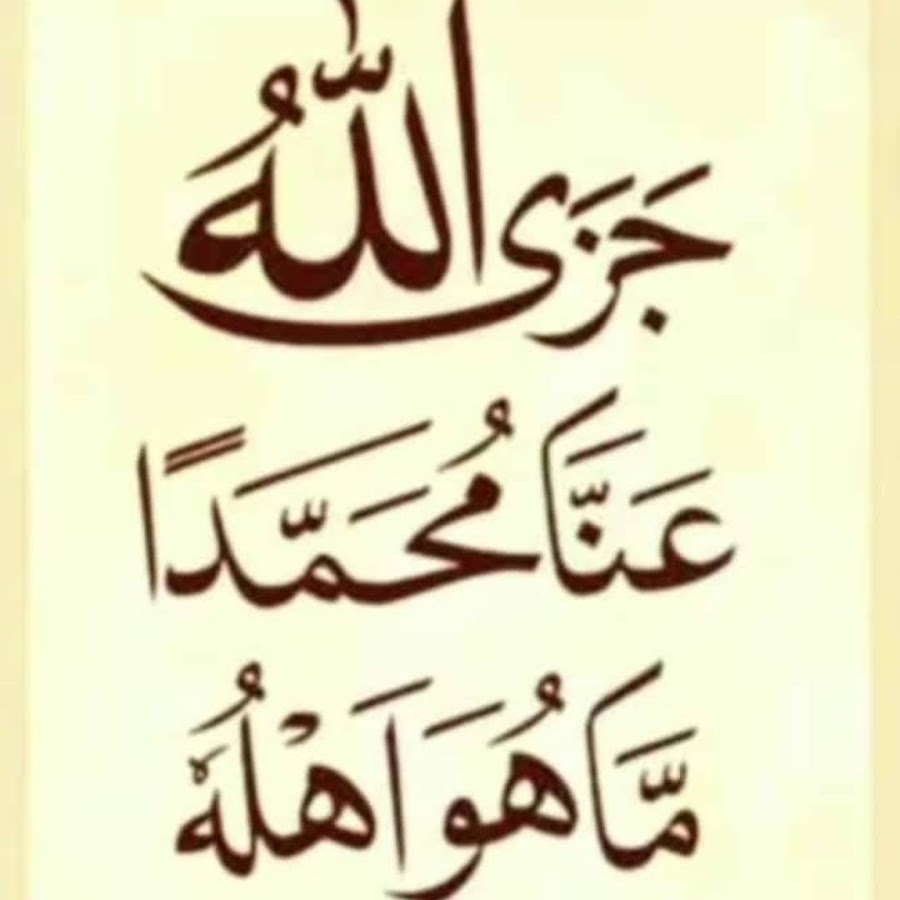 جَزَى اللّٰهُ
عَنَّا مُحَمَّدًا
مَّا هُوَ اَهْلُهٗ